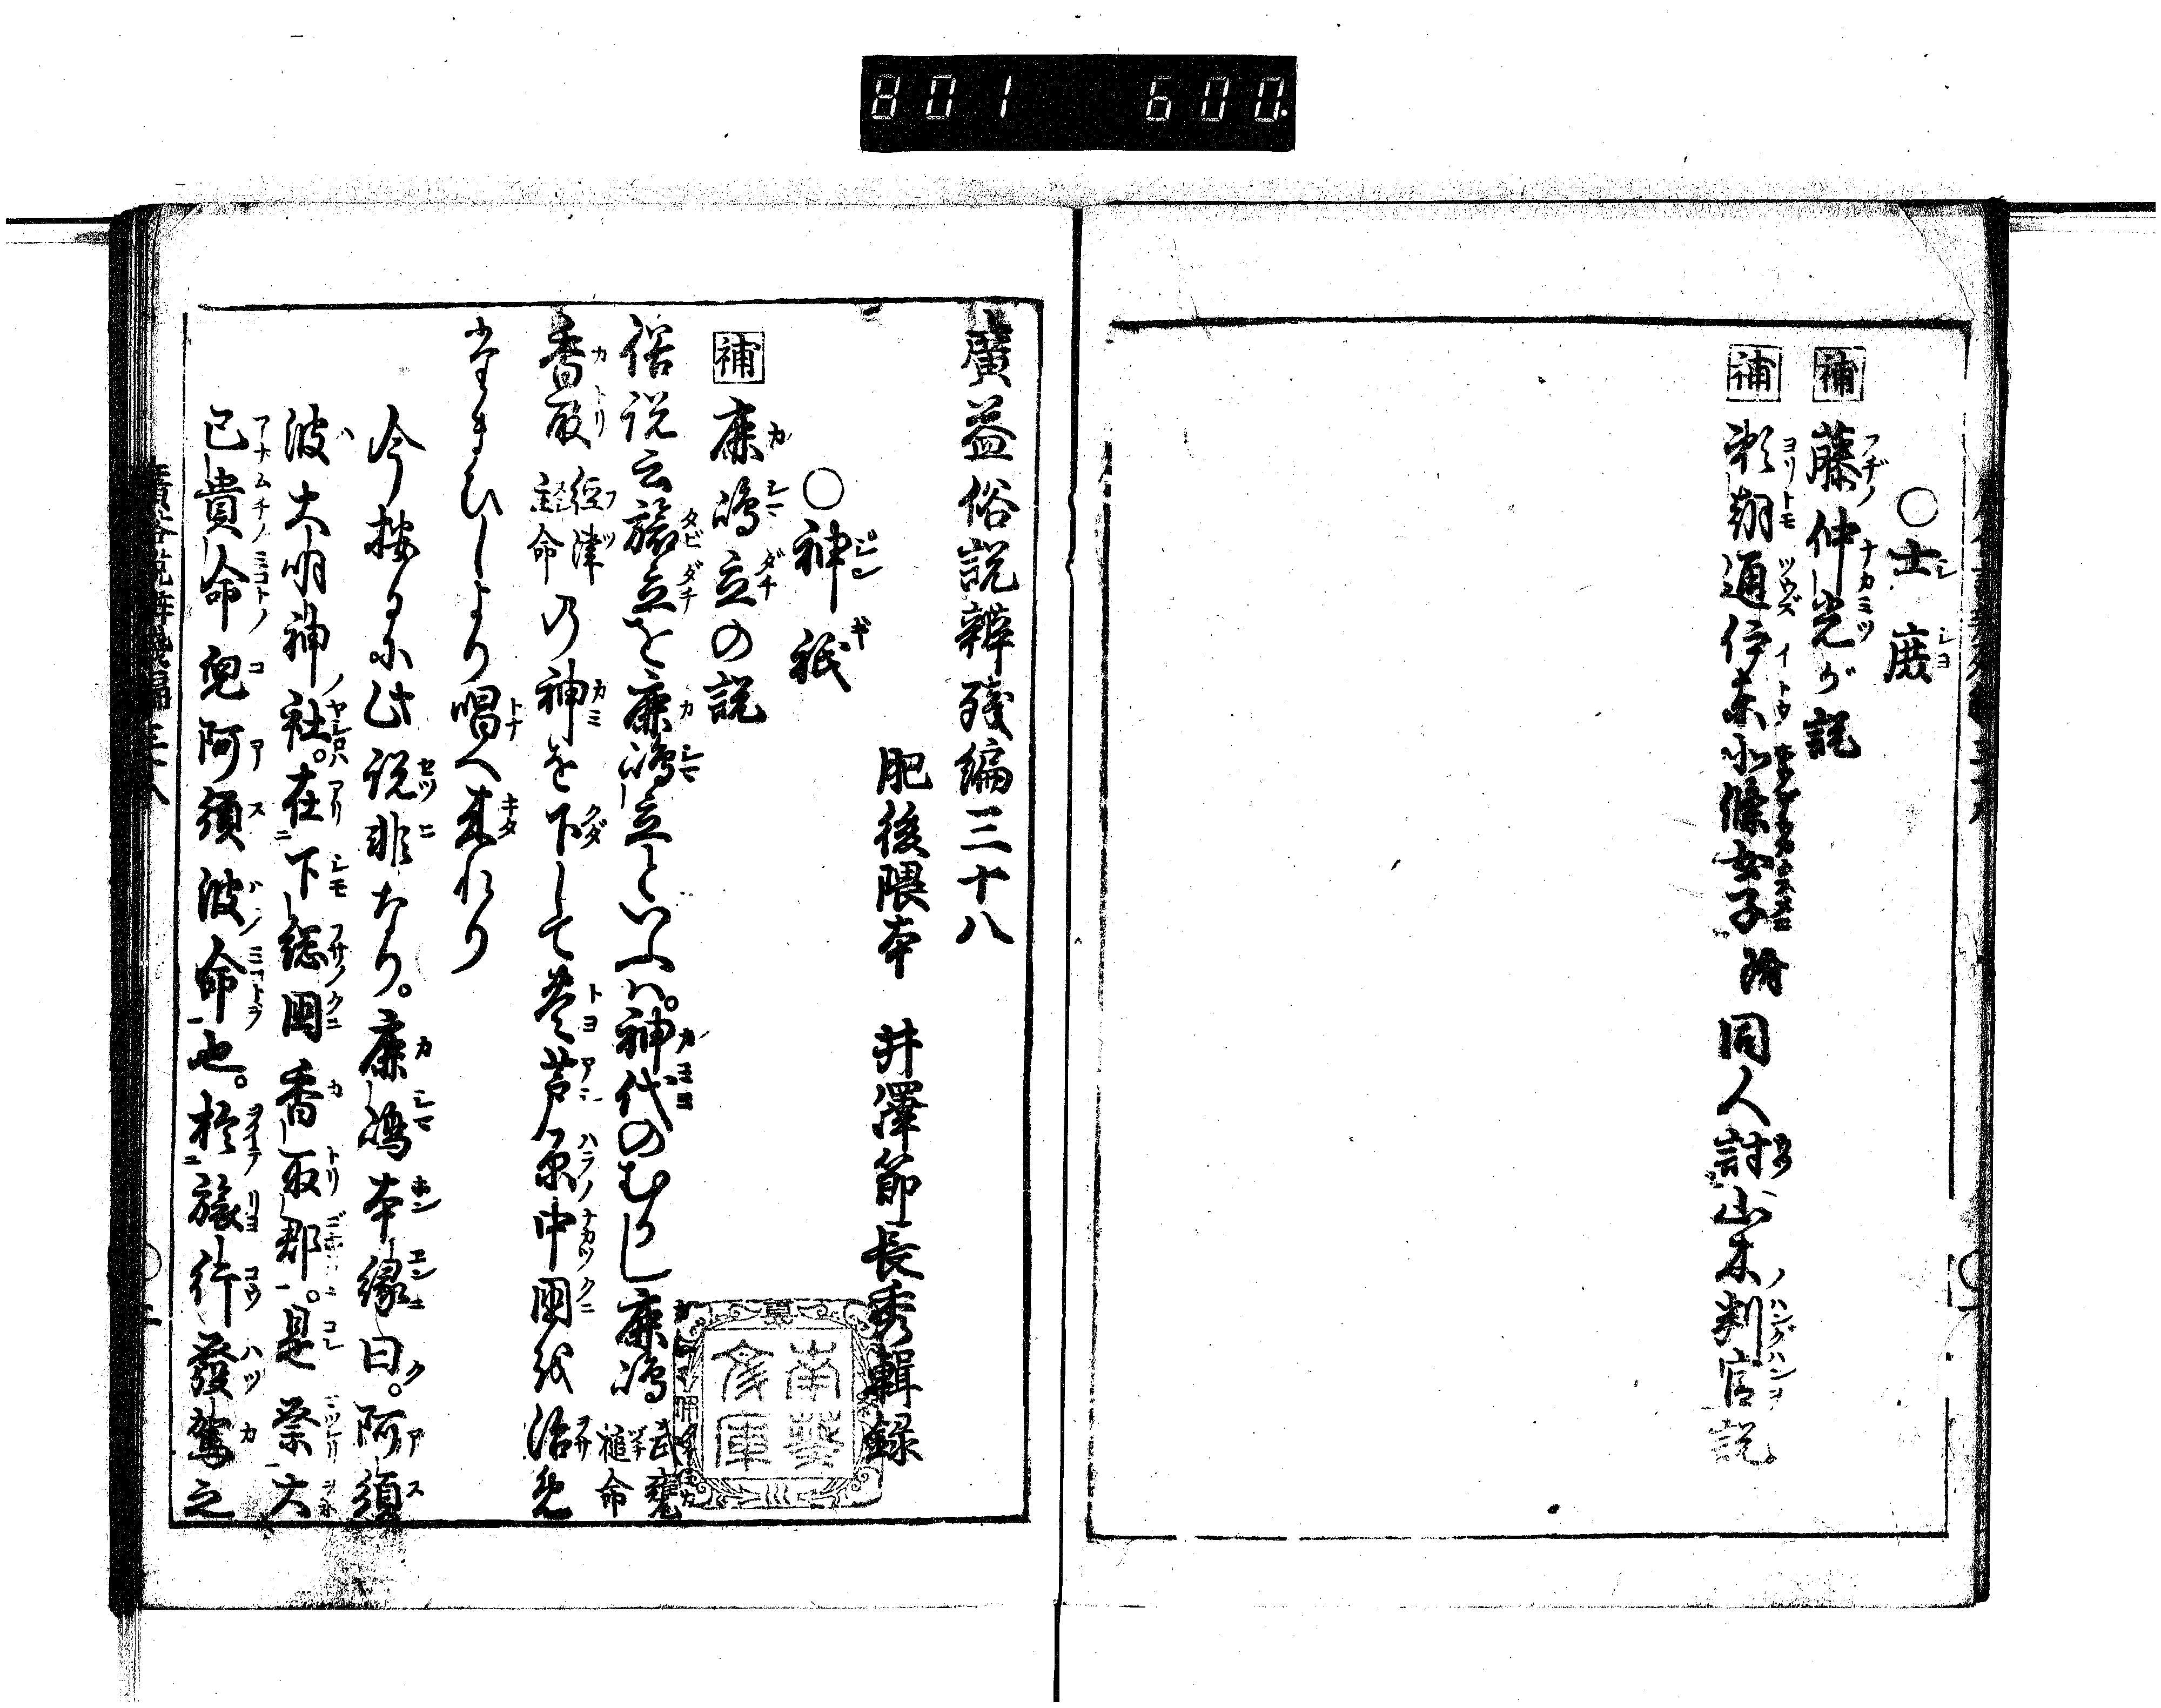 801 600.
○士庶
補 藤仲光が説
補 頼朝通伊東北條女子 附 同人討山木判官説
廣益俗説辨殘編三十八
肥後隈本 井澤節長秀輯録
○神祇
補 鹿嶋立の説
俗説云旅立を鹿嶋立といふハ。神代のむかし鹿嶋 武甕槌命
香取 經津主命 の神を下して豊芦原中国を治めし
たまひしより唱へ来れり
今按るに此説非なり。鹿嶋本縁曰。阿須
波大明神社。在下総国香取郡。是祭大
己貴命兒阿須波命也。於旅行發駕之